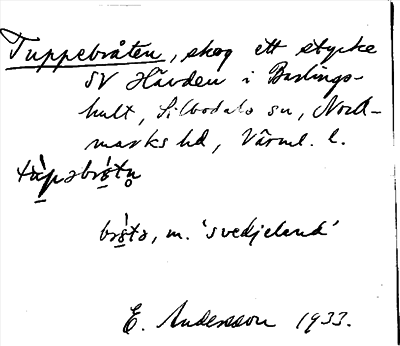 Tuppebråten, skog ett stycke
SV Hävden i Bastings-
hult, Silbodals sn, Nord-
marks hd, Värml. l.
tùpəbrɷ́tn̥
brɷ́tə, m. 'svedjeland'
E. Andersson 1933.